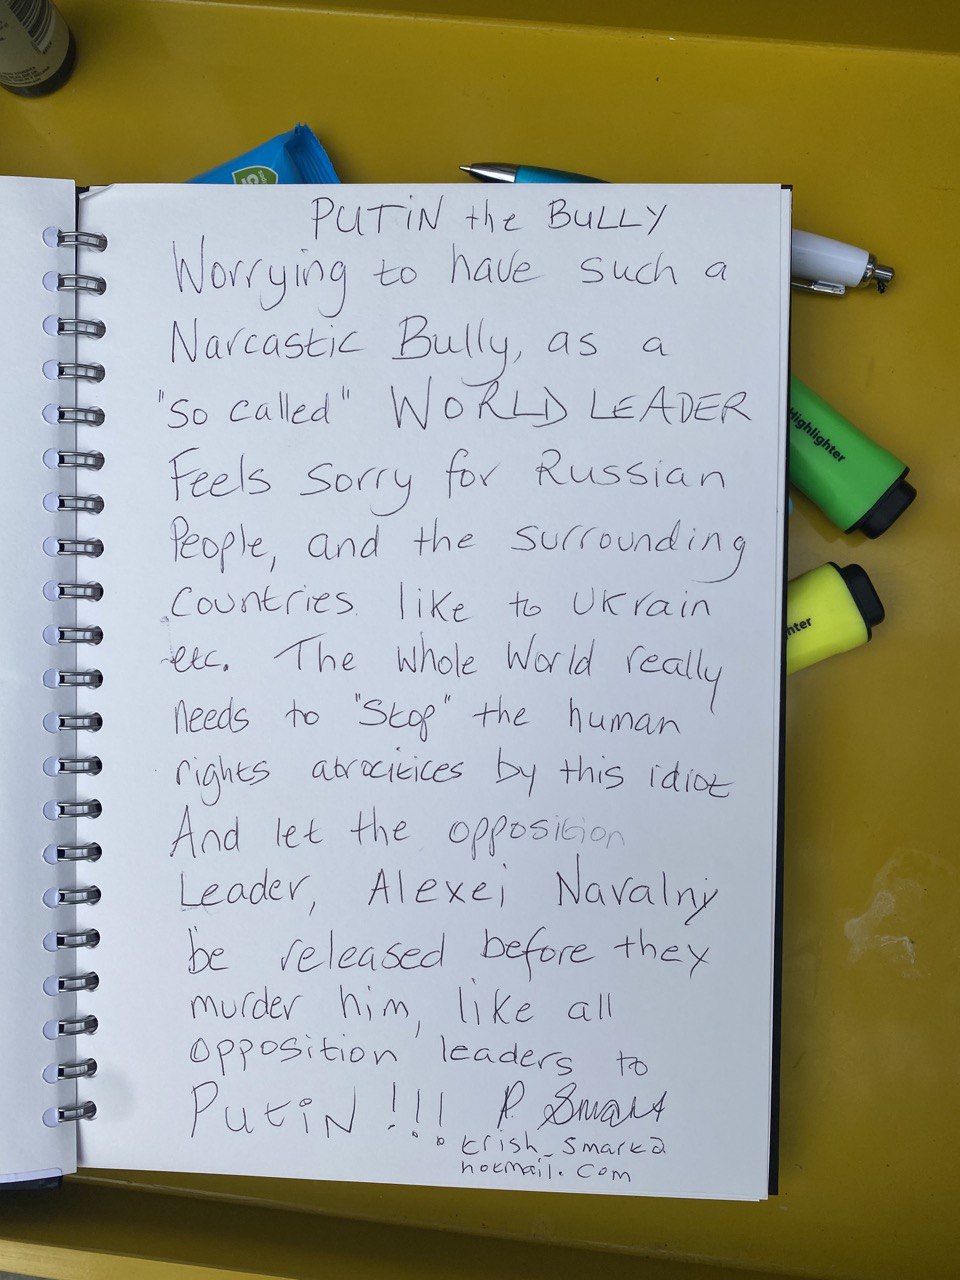 PUTiN the BULLY
Worrying to have such a
Narcastic Bully, as a
"so called" WORLD LEADER
Feels sorry for Russian
People, and the surrounding
countries like to Ukrain
etc. The whole World really
needs to "Stop" the human
rights atrocitices by this idiot
And let the opposition
Leader, Alexei Navalny
be released before they
murder him, like all
opposition leaders to
PutiN !!! P. Smart
trish_smart@
hotmail.com
Highlighter
hter